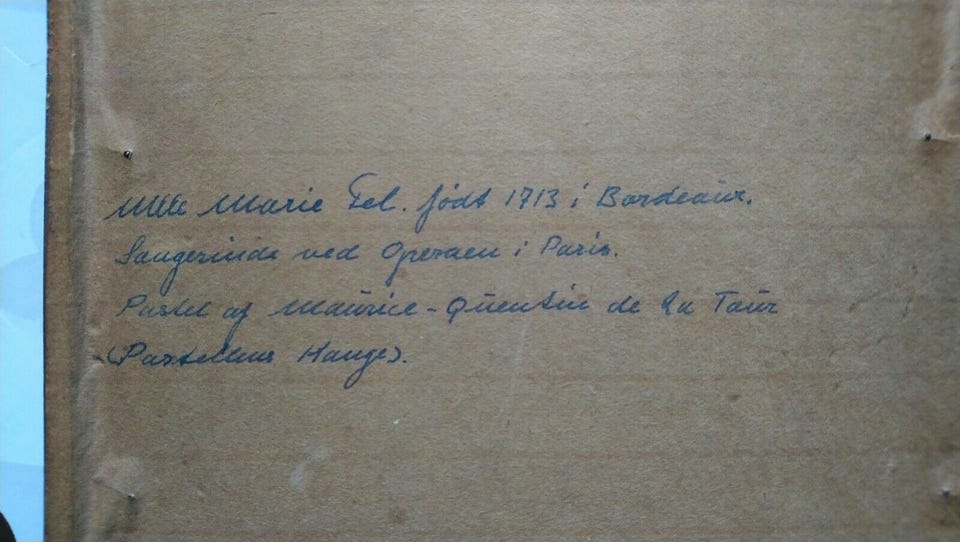 Mlle Marie Fel. født 1713 i Bordeaux.
Sangerinde ved Operaen i Paris.
Pastel af Maurice-Quentin de La Taur
(Pastellens Konge).